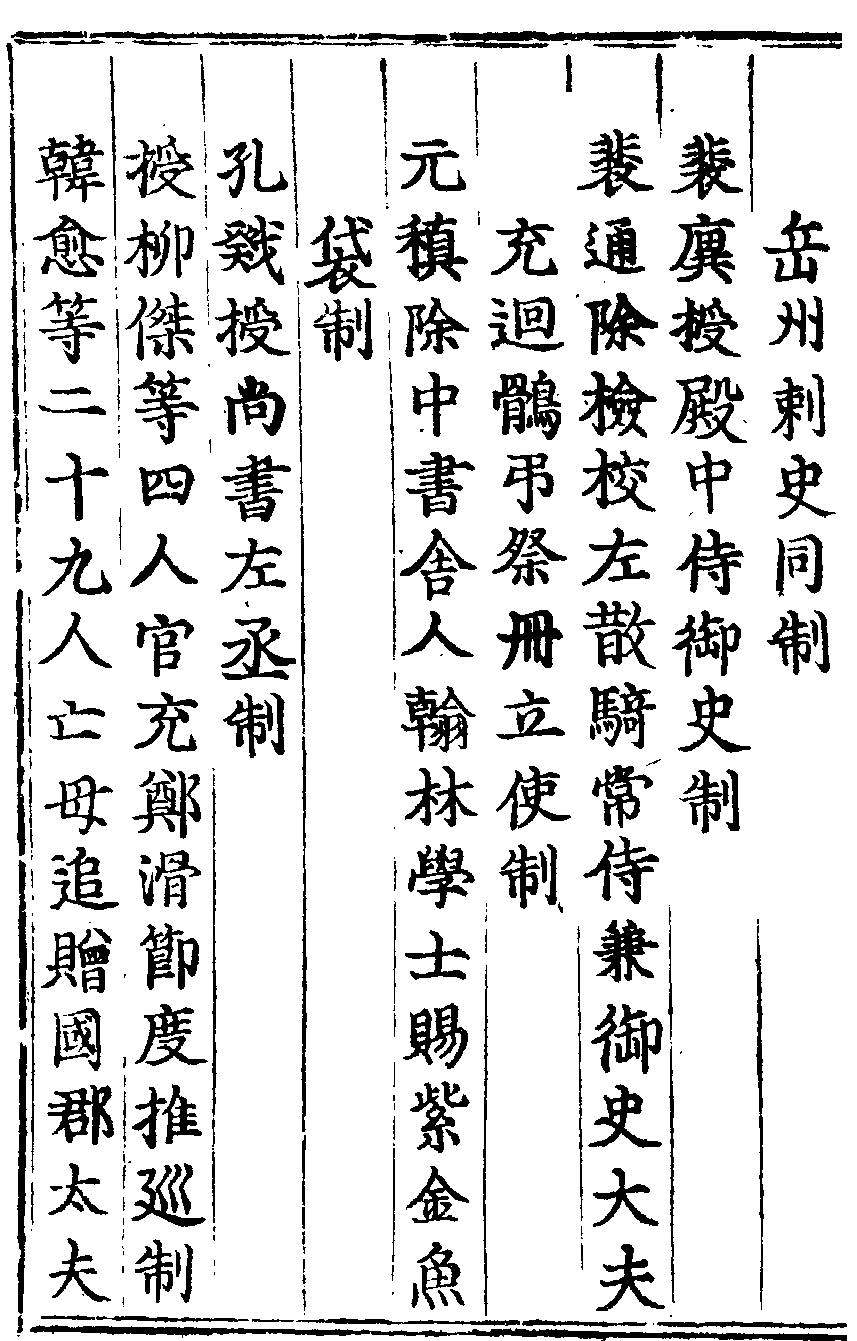 岳州刺史同制
裴廙授殿中侍御史制
裴通除檢校左散騎常侍兼御史大夫
充迴鶻弔祭冊立使制
元稹除中書舍人翰林學士賜紫金魚
袋制
孔戣授尚書左丞制
授柳傑等四人官充鄭滑節度推巡制
韓愈等二十九人亡母追贈國郡太夫